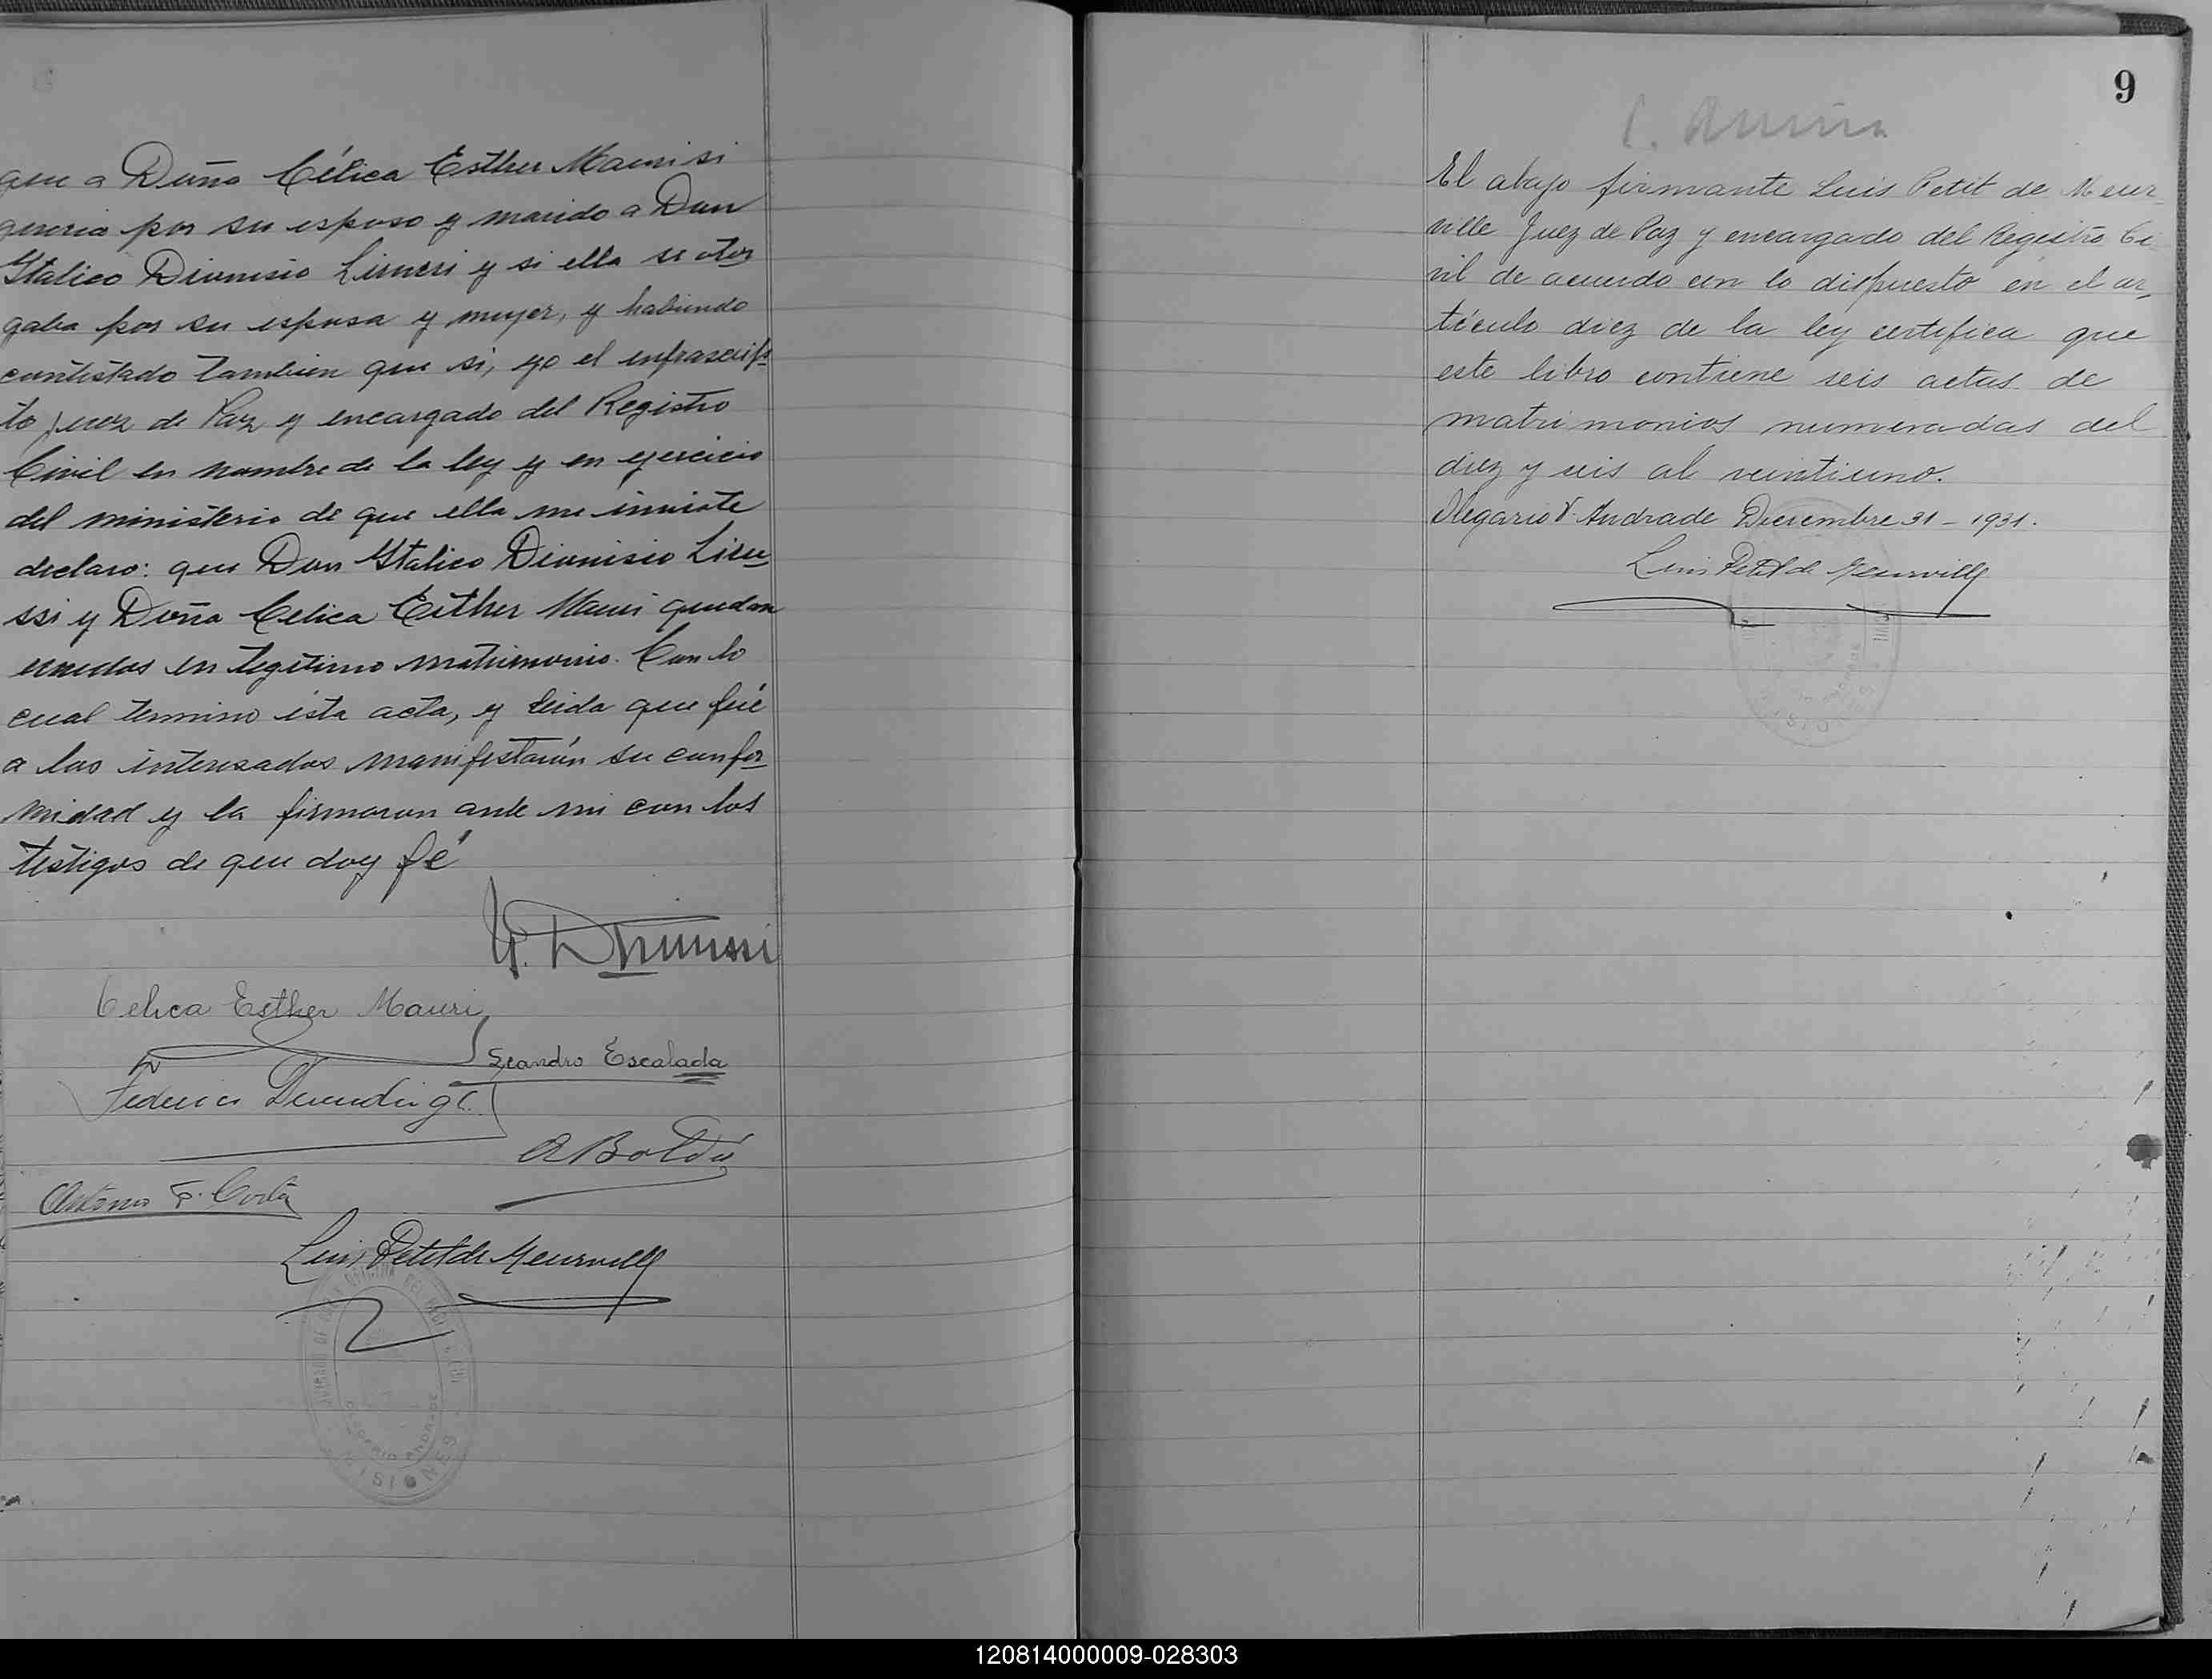 que a Doña Célica Esther Mauri si
queria por su esposo y marido a Don
Italico Dionisio y si ella se otor
gaba por su esposa y mujer, y habiendo
contestado tambien que si, yo el infrascrip-
to juez de Paz y encargado del Registro
Civil en nombre de la ley y en ejercicio
del ministerio de que ella me inviste
declaro: que Don Italico Dionisio
ssi y Doña Celica Esther Mauri quedan
unidos en legitimo matrimonio. Con lo
cual termino ésta acta, y leida que fué
a los interesados manifestarón su confor
midad y la firmaron ante mi con los
testigos de que doy fé
Celica Esther Mauri
Leandro Escalada
Federico
A Boldú
Antonio F. Costa
Luis Petit de Meurville
OLEGARIO ANDRADE
MISIONES
9
El abajo firmante Luis Petit de Meur-
ville Juez de Paz y encargado del Registro Ci
vil de acuerdo con lo dispuesto en el ar-
tículo diez de la ley certifica que
este libro contiene seis actas de
matrimonios numeradas del
diez y seis al veintiuno.
Olegario V. Andrade Diciembre 31 - 1931.
Luis Petit de Meurville
MISIONES
120814000009-028303